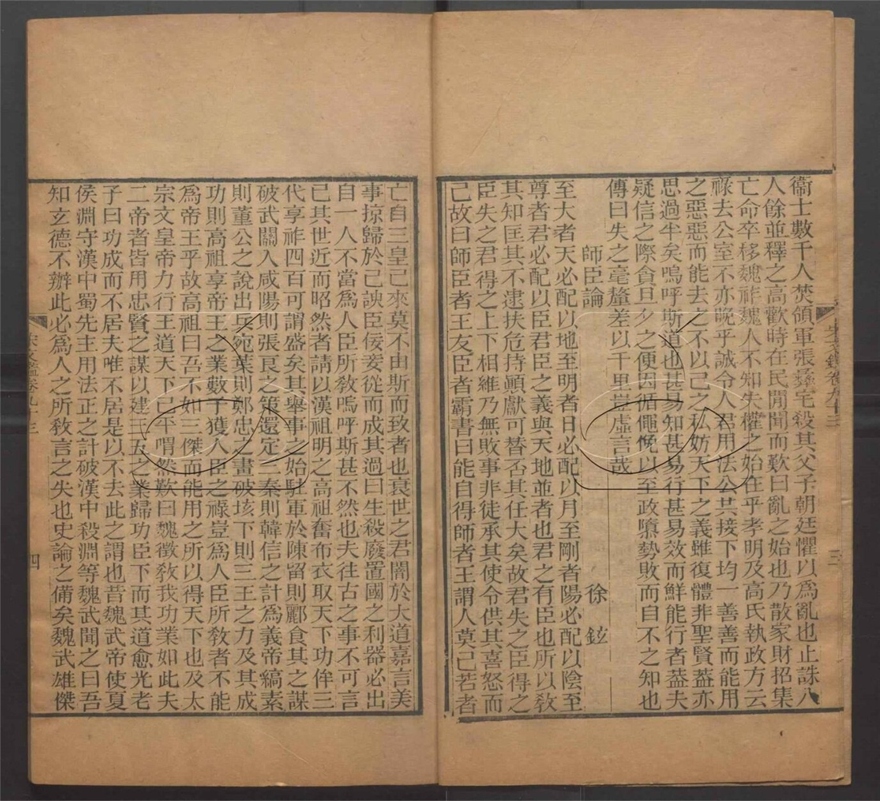 衞士數千人焚領軍張彝宅殺其父子朝廷懼以爲亂也止誅八
人餘並釋之高歡時在民閒聞而歎曰亂之始也乃散家財招集
亡命卒移魏祚魏人不知失權之始在乎孝明及高氏執政方云
祿去公室不亦晚乎誠令人君用法公共接下均一善善而能用
之惡惡而能去之不以己之私妨天下之義雖復體非聖賢蓋亦
思過半矣嗚呼斯道也甚易知甚易行甚易效而鮮能行者蓋夫
疑信之際貪旦夕之便因循僶俛以至政隳勢敗而自不之知也
傳曰失之毫釐差以千里豈虛言哉
師臣論 徐鉉
至大者天必配以地至明者日必配以月至剛者陽必配以陰至
尊者君必配以臣君臣之義與天地並者也君之有臣也所以敎
其知匡其不逮扶危持顚獻可替否其任大矣故君失之臣得之
臣失之君得之上下相維乃無敗事非徒承其使令供其喜怒而
己故曰師臣者王友臣者霸書曰能自得師者王謂人莫己若者
亡自三皇已來莫不由斯而致者也衰世之君闇於大道嘉言美
事掠歸於己諛臣佞妾從而成其過曰生殺廢置國之利器必出
自一人不當爲人臣所敎嗚呼斯甚不然也夫往古之事不可言
已其世近而昭然者請以漢祖明之高祖奮布衣取天下功侔三
代享祚四百可謂盛矣其舉事之始駐軍於陳留則酈食其之謀
破武關入咸陽則張良之策還定三秦則韓信之計爲義帝縞素
則董公之說出兵宛葉則鄭忠之畫破垓下則三王之力及其成
功則高祖享帝王之業數子獲人臣之祿豈爲人臣所敎者不能
爲帝王乎故高祖曰吾不如三傑而能用之所以得天下也及太
宗文皇帝力行王道天下已平喟然歎曰魏徵敎我功業如此夫
二帝者皆用忠賢之謀以建三五之業歸功臣下而其道愈光老
子曰功成而不居夫唯不居是以不去此之謂也昔魏武帝使夏
侯淵守漢中蜀先主用法正之計破漢中殺淵等魏武聞之曰吾
知玄德不辦此必爲人之所敎言之失也史論之備矣魏武雄傑
宋文鑑卷九十三
四